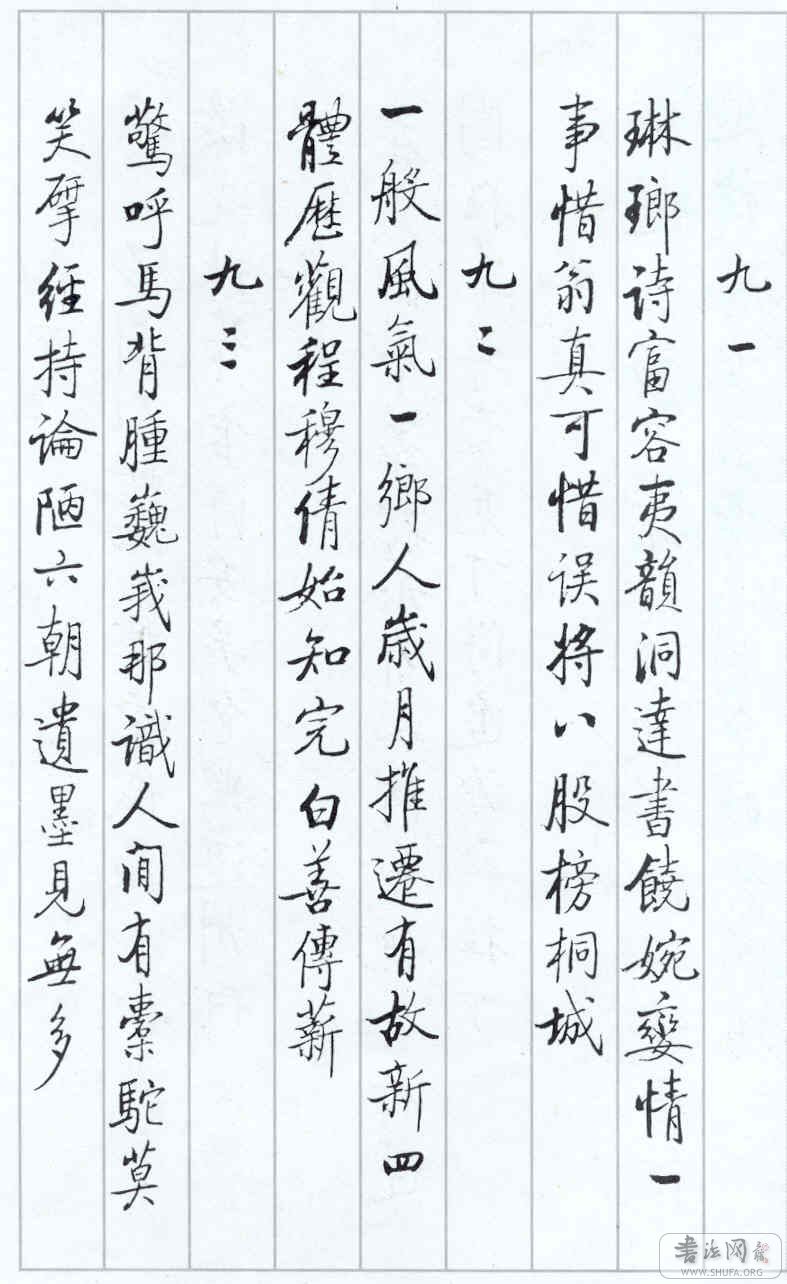 九一
琳瑯诗富容夷韻洞達書饒婉孌情一
事惜翁真可惜误将八股榜桐城
九二
一般風氣一鄉人歲月推遷有故新四
體歷觀程穆倩始知完白善傳薪
九三
驚呼馬背腫巍峩那識人间有橐駝莫
笑揅經持論陋六朝遺墨見無多
書法网
WWW.SHUFA.ORG